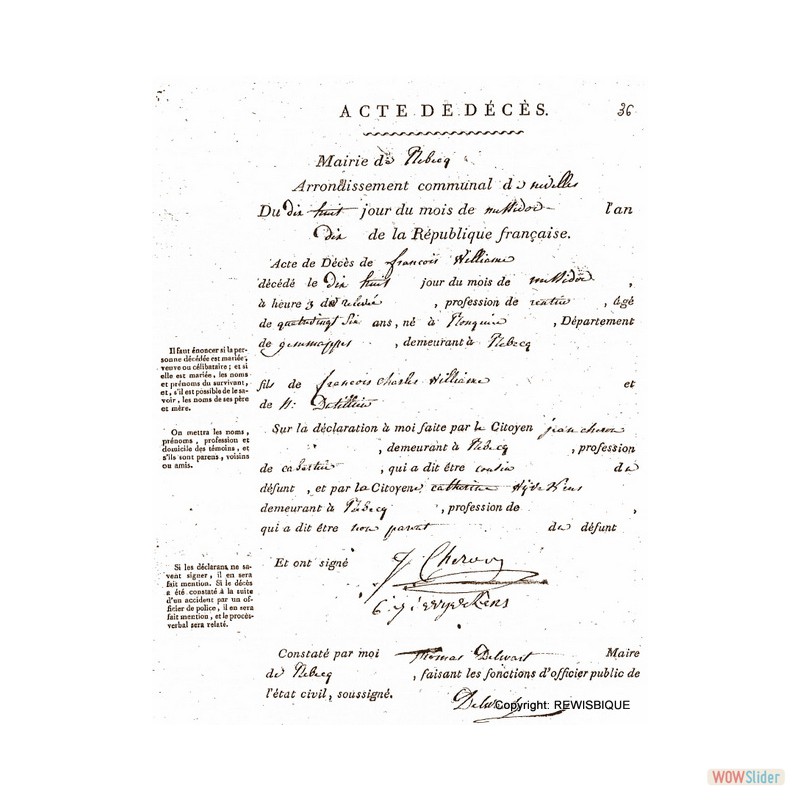 ACTE DE DÉCÈS. 36
Mairie de Rebecq
Arrondissement communal de nivelles
Du dix huit jour du mois de messidor l'an
dix de la République française.
Acte de Décès de françois Williame
décédé le dix huit jour du mois de messidor,
à heure 3 de relevée, profession de rentier, âgé
de quatrevingt six ans, né à , Département
de gemmappes, demeurant à Rebecq
Il faut énoncer si la per-
sonne décédée est mariée,
veuve ou célibataire ; et si
elle est mariée, les noms
et prénoms du survivant,
et, s'il est possible de le sa-
voir, les noms de ses père
et mère.
fils de françois charles Williame et
de N:
On mettra les noms,
prénoms, profession et
domicile des témoins, et
s'ils sont parens, voisins
ou amis.
Sur la déclaration à moi faite par le Citoyen jean cheron
, demeurant à Rebecq, profession
de cabartier, qui a dit être cousin du
défunt, et par la Citoyene catherine
demeurant à Rebecq, profession de ,
qui a dit être non parent du défunt
Si les déclarans ne sa-
vent signer, il en sera
fait mention. Si le décès
a été constaté à la suite
d'un accident par un of-
ficier de police, il en sera
fait mention, et le procès-
verbal sera relaté.
Et ont signé J Cheron
Constaté par moi Thomas Delwart Maire
de Rebecq, faisant les fonctions d'officier public de
l'état civil, soussigné.
Copyright: REWISBIQUE
WOWSlider